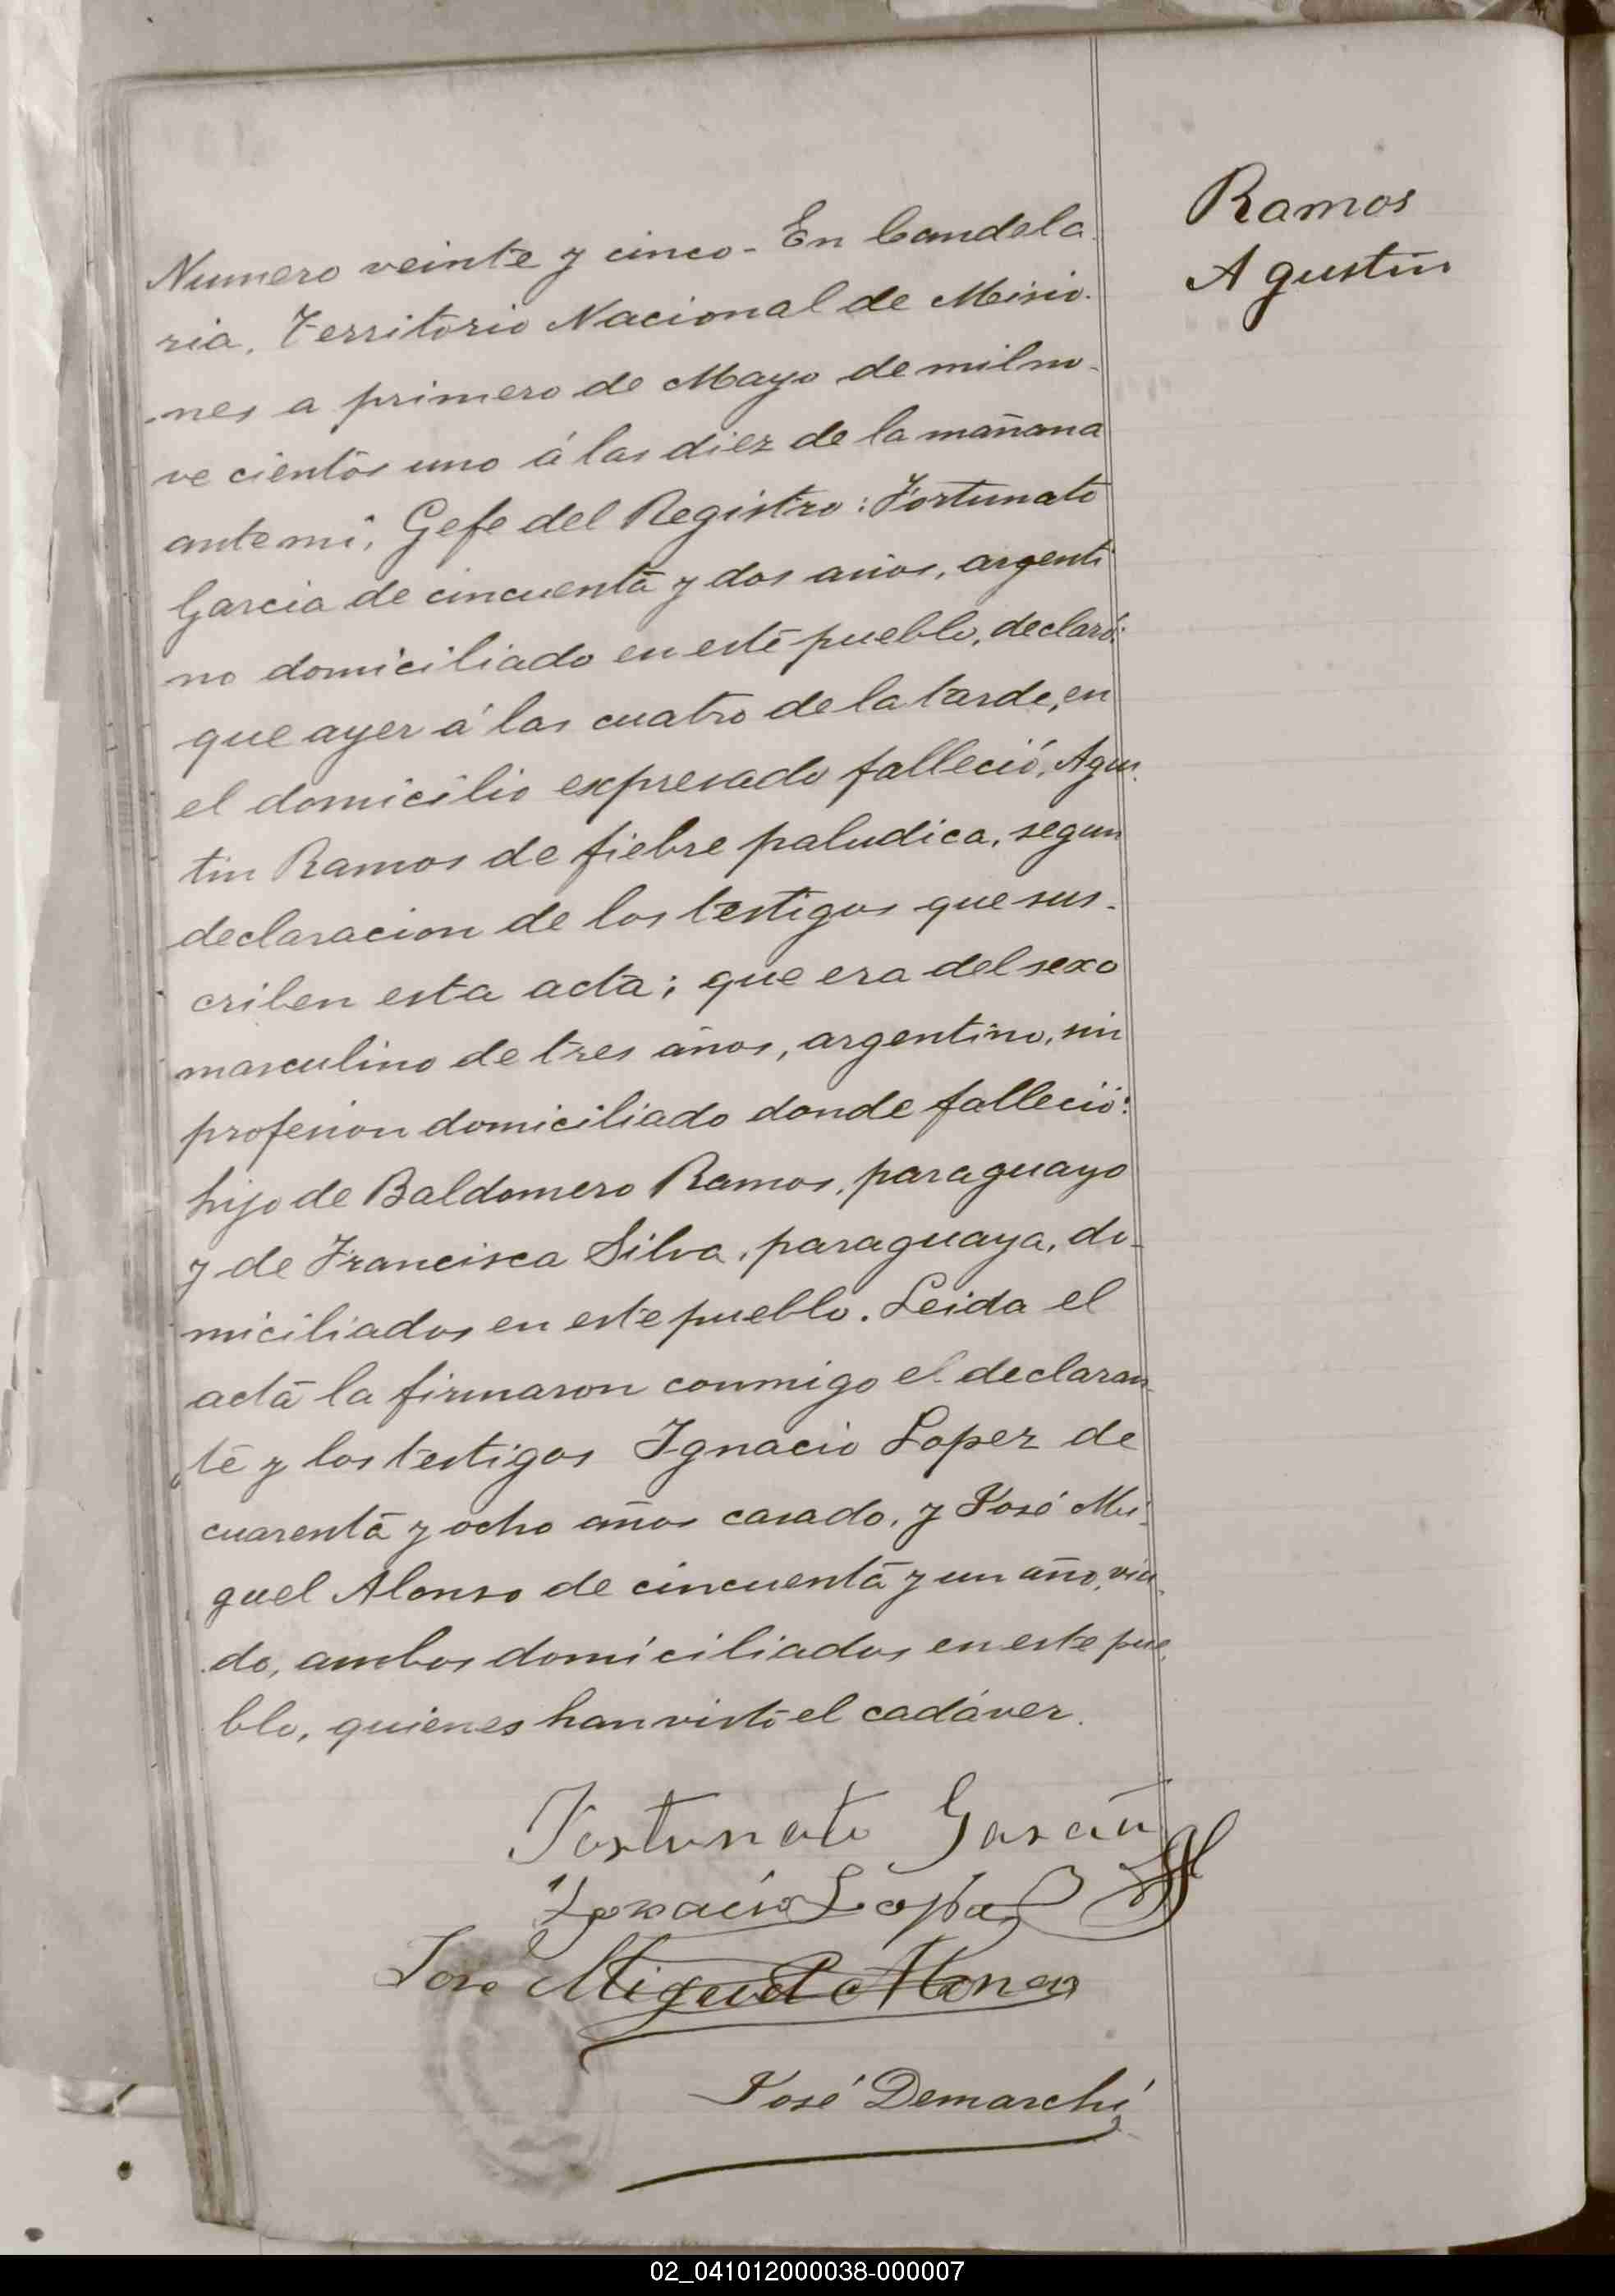 Ramos
Agustin
Numero veinte y cinco - En Candela
ria, Territorio Nacional de Misio-
nes a primero de Mayo de mil no-
ve cientos uno á las diez de la mañana
ante mi, Gefe del Registro: Fortunato
Garcia de cincuenta y dos años, argenti
no domiciliado en este pueblo, declaró:
que ayer á las cuatro de la tarde, en
el domicilio expresado falleció, Agus-
tin Ramos de fiebre paludica, segun
declaracion de los testigos que sus-
criben esta acta; que era del sexo
masculino de tres años, argentino, sin
profesion domiciliado donde falleció:
hijo de Baldomero Ramos, paraguayo
y de Francisca Silva, paraguaya, do-
miciliados en este pueblo. Leida el
acta la firmaron conmigo el declaran-
te y los testigos Ignacio Lopez de
cuarenta y ocho años casado, y José Mi-
guel Alonso de cincuenta y un año, viu-
do, ambos domiciliados en este pue-
blo, quienes han visto el cadáver.
Fortunato Garcia
Ignacio Lopez
Jose Miguel Alonso
José Demarchi
02_041012000038-000007